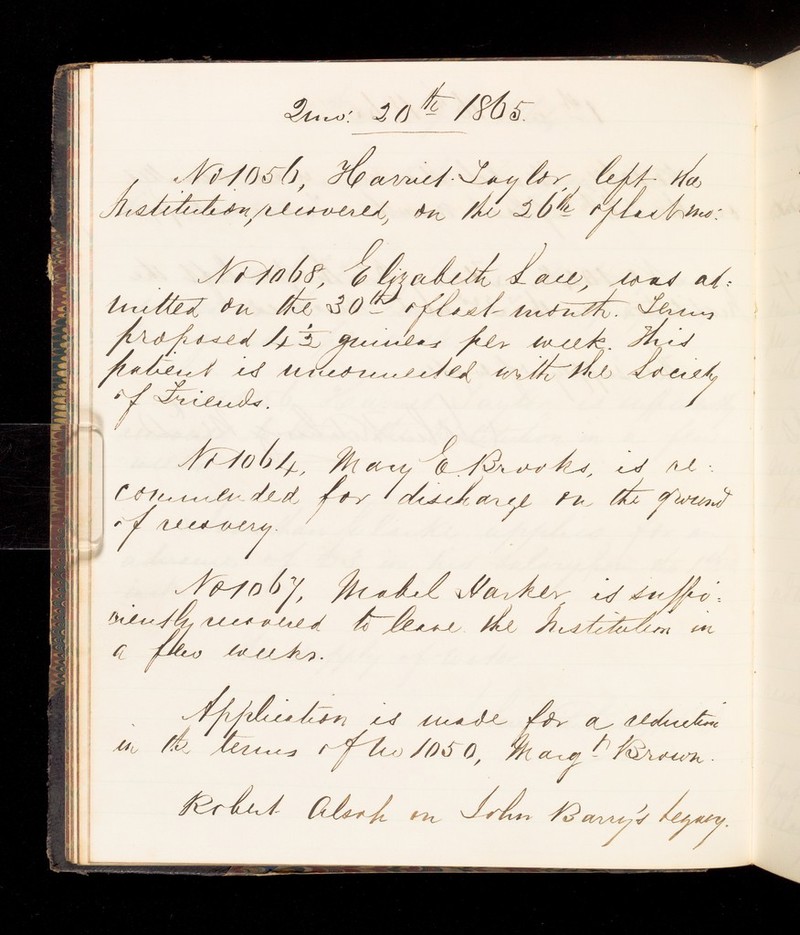 2mo: 20th 1865.
No 1056, Harriet Taylor, left the
Institution, recovered, on the 26th of last mo:
No 1068, Elizabeth Lace, was ad:
mitted on the 30th of last month. Terms
proposed 4½ guineas per week. This
patient is unconnected with the Society
of Friends.
No 1064, Mary E. Brooks, is re:
commended for discharge on the ground
of recovery.
No 1067, Mabel Harker, is suffi:
ciently recovered to leave the Institution in
a few weeks.
Application is made for a reduction
in the terms of No 1050, Margt Brown.
Robert Alsop on John Barry's Legacy.